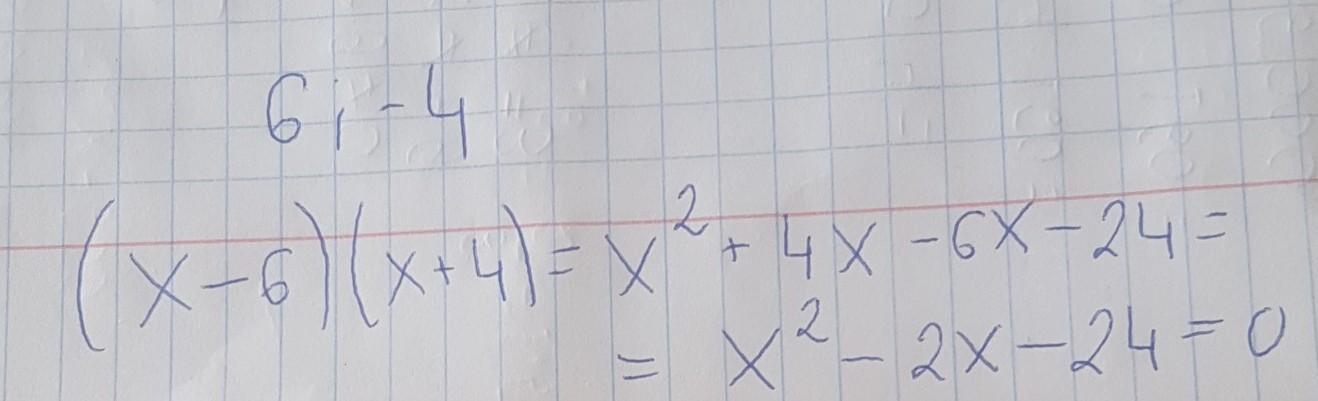 6; -4
(x-6)(x+4)= x² + 4x - 6x - 24 =
= x² - 2x - 24 = 0